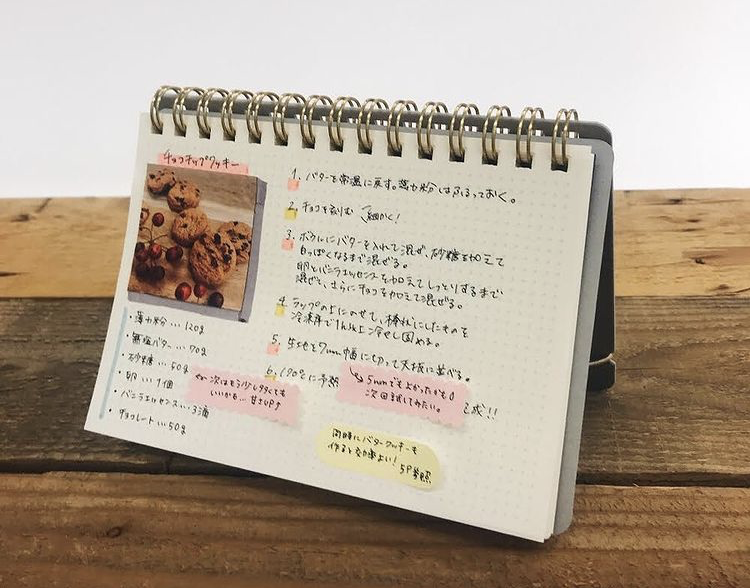 チョコチップクッキー
・薄力粉…120g
・無塩バター…70g
・砂糖…50g
・卵…1個
・バニラエッセンス…3滴
・チョコレート…50g
次はもう少し少なくても
いいかも… 甘さUP↑
1. バターを常温に戻す。薄力粉はふるっておく。
2. チョコを刻む 細かく!
3. ボウルにバターを入れて混ぜ、砂糖を加えて
白っぽくなるまで混ぜる。
卵とバニラエッセンスを加えてしっとりするまで
混ぜて、さらにチョコを加えて混ぜる。
4. ラップの上にのせて、棒状にしたものを
冷凍庫で1h以上冷やし固める。
5. 生地を7mm幅に切って天板に並べる。
6. 190℃に予熱
成!!
5mmでもよかったかも
次回試してみたい。
同時にバタークッキーも
作ると効率よい!
5P参照